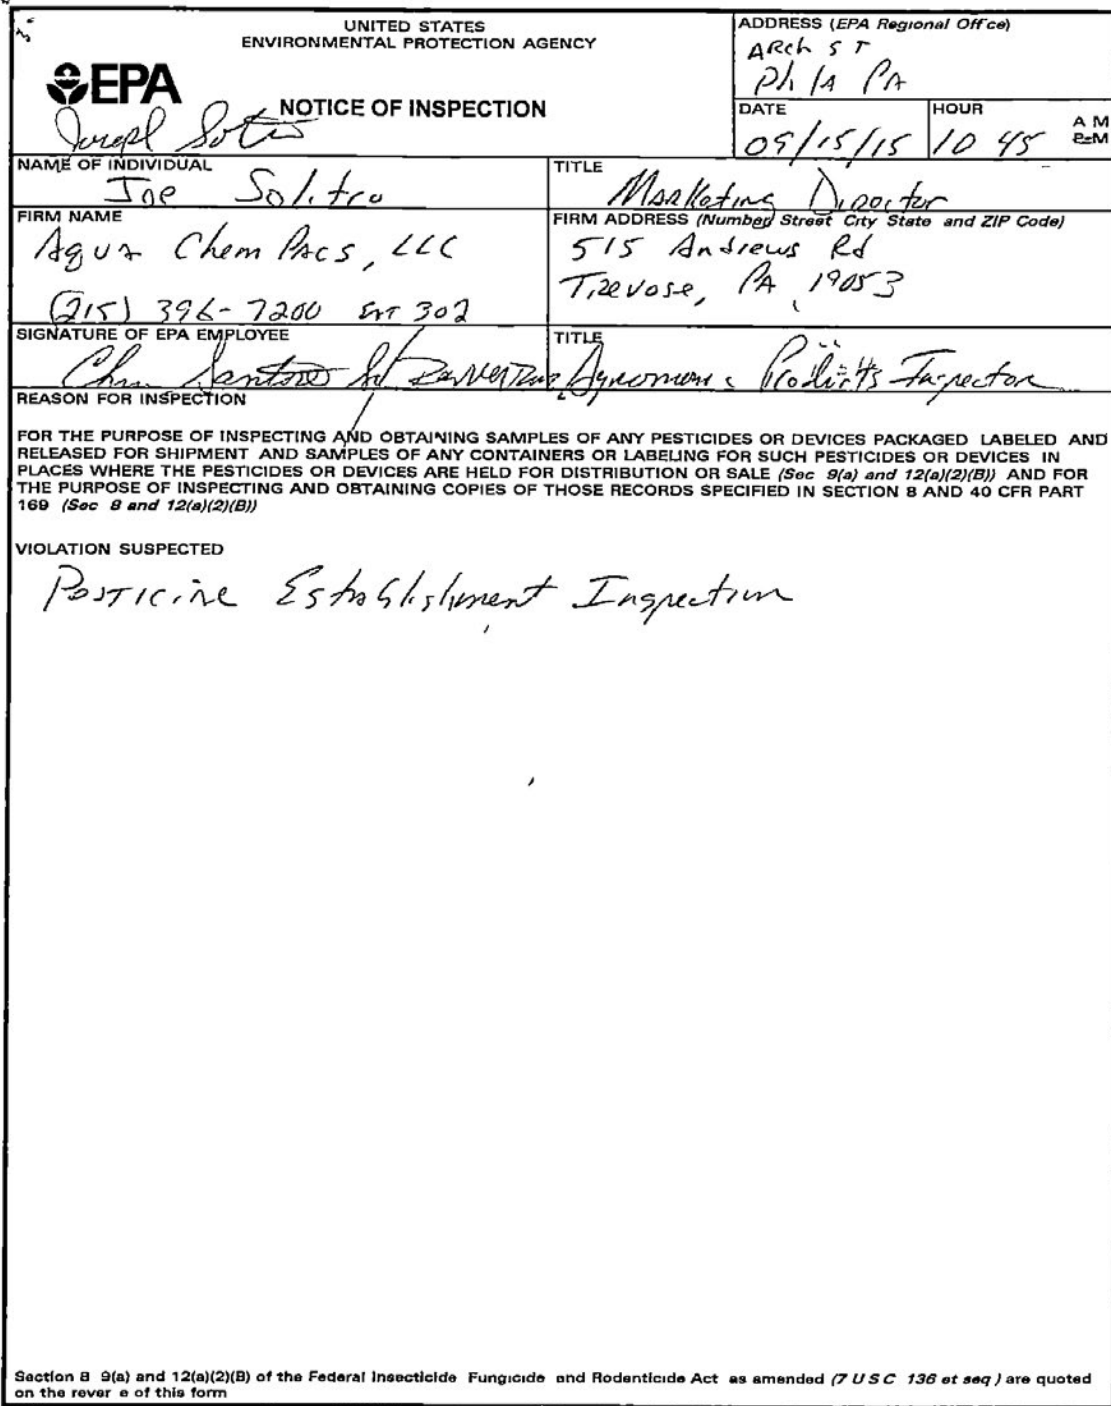 UNITED STATES
ENVIRONMENTAL PROTECTION AGENCY
EPA
NOTICE OF INSPECTION
ADDRESS (EPA Regional Off ce)
ARch ST
Phila PA
DATE
HOUR
09/15/15
10 45
A M
P M
NAME OF INDIVIDUAL
Joe Solitro
TITLE
Marketing Director
FIRM NAME
Aqua Chem PAcs, LLC
(215) 396-7200 EXT 302
FIRM ADDRESS (Number Street City State and ZIP Code)
515 Andrews Rd
Trevose, PA 19053
SIGNATURE OF EPA EMPLOYEE
Santoro
TITLE
Products Inspector
REASON FOR INSPECTION
FOR THE PURPOSE OF INSPECTING AND OBTAINING SAMPLES OF ANY PESTICIDES OR DEVICES PACKAGED LABELED AND
RELEASED FOR SHIPMENT AND SAMPLES OF ANY CONTAINERS OR LABELING FOR SUCH PESTICIDES OR DEVICES IN
PLACES WHERE THE PESTICIDES OR DEVICES ARE HELD FOR DISTRIBUTION OR SALE (Sec 9(a) and 12(a)(2)(B)) AND FOR
THE PURPOSE OF INSPECTING AND OBTAINING COPIES OF THOSE RECORDS SPECIFIED IN SECTION 8 AND 40 CFR PART
169 (Sec 8 and 12(a)(2)(B))
VIOLATION SUSPECTED
Pesticide Establishment Inspection
Section 8 9(a) and 12(a)(2)(B) of the Federal Insecticide Fungicide and Rodenticide Act as amended (7 U S C 136 et seq ) are quoted
on the rever e of this form